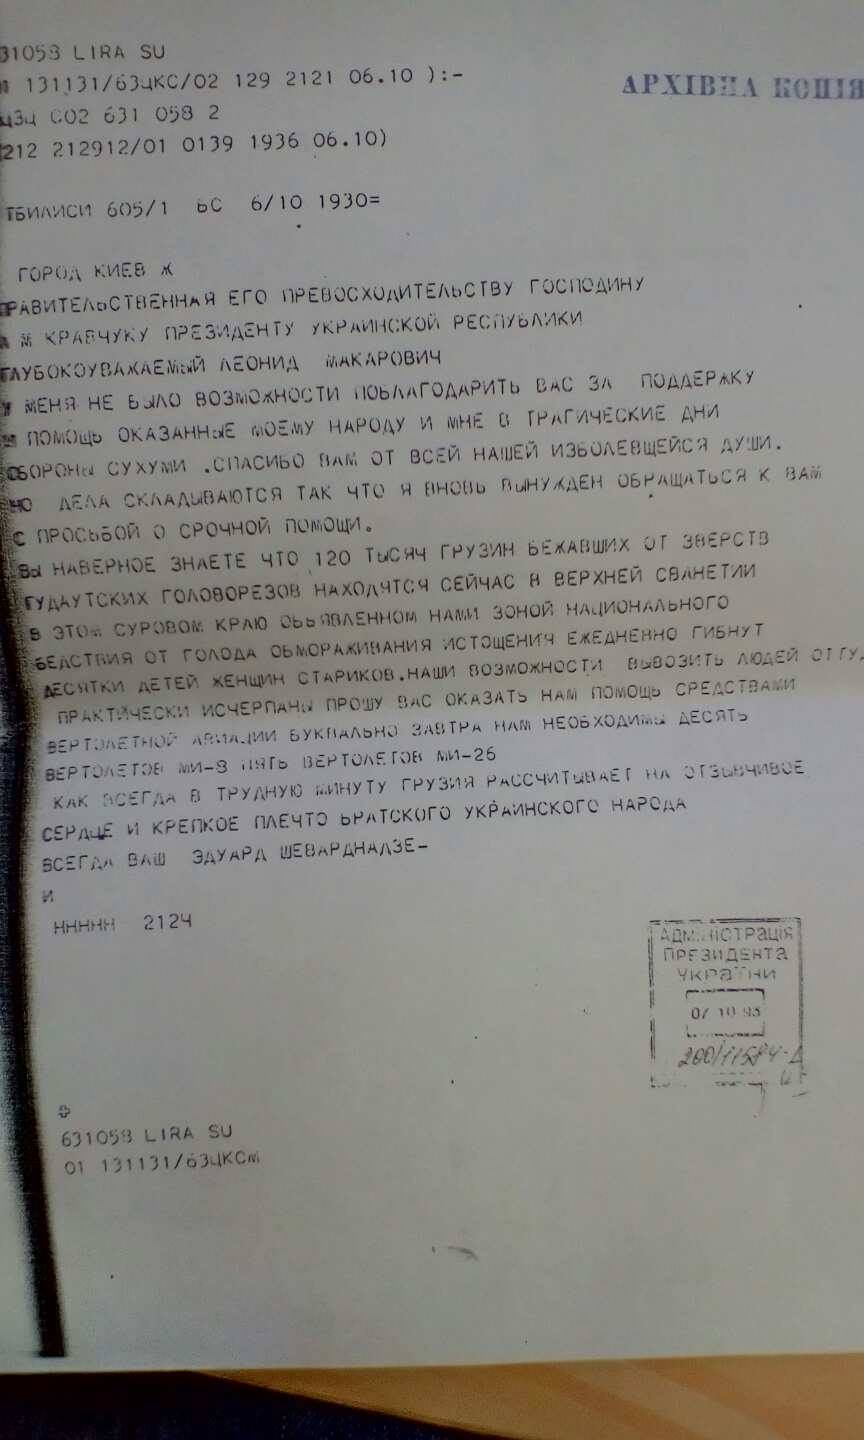 31058 LIRA SU
АРХІВНА КОПІЯ
131131/63ЦКС/02 129 2121 06.10 ):-
ЦЗЦ С02 631 058 2
212 212912/01 0139 1936 06.10)
ТБИЛИСИ 605/1 БС 6/10 1930=
ГОРОД КИЕВ Ж
ПРАВИТЕЛЬСТВЕННАЯ ЕГО ПРЕВОСХОДИТЕЛЬСТВУ ГОСПОДИНУ
Л М КРАВЧУКУ ПРЕЗИДЕНТУ УКРАИНСКОЙ РЕСПУБЛИКИ
ГЛУБОКОУВАЖАЕМЫЙ ЛЕОНИД МАКАРОВИЧ
У МЕНЯ НЕ БЫЛО ВОЗМОЖНОСТИ ПОБЛАГОДАРИТЬ ВАС ЗА ПОДДЕРЖКУ
И ПОМОЩЬ ОКАЗАННЫЕ МОЕМУ НАРОДУ И МНЕ В ТРАГИЧЕСКИЕ ДНИ
ОБОРОНЫ СУХУМИ .СПАСИБО ВАМ ОТ ВСЕЙ НАШЕЙ ИЗБОЛЕВЩЕЙСЯ ДУШИ.
НО ДЕЛА СКЛАДЫВАЮТСЯ ТАК ЧТО Я ВНОВЬ ВЫНУЖДЕН ОБРАЩАТЬСЯ К ВАМ
С ПРОСЬБОЙ О СРОЧНОЙ ПОМОЩИ.
ВЫ НАВЕРНОЕ ЗНАЕТЕ ЧТО 120 ТЫСЯЧ ГРУЗИН БЕЖАВШИХ ОТ ЗВЕРСТВ
ГУДАУТСКИХ ГОЛОВОРЕЗОВ НАХОДЯТСЯ СЕЙЧАС В ВЕРХНЕЙ СВАНЕТИИ
В ЭТОМ СУРОВОМ КРАЮ ОБЬЯВЛЕННОМ НАМИ ЗОНОЙ НАЦИОНАЛЬНОГО
БЕДСТВИЯ ОТ ГОЛОДА ОБМОРАЖИВАНИЯ ИСТОЩЕНИЯ ЕЖЕДНЕВНО ГИБНУТ
ДЕСЯТКИ ДЕТЕЙ ЖЕНЩИН СТАРИКОВ.НАШИ ВОЗМОЖНОСТИ ВЫВОЗИТЬ ЛЮДЕЙ ОТТУД
ПРАКТИЧЕСКИ ИСЧЕРПАНЫ ПРОШУ ВАС ОКАЗАТЬ НАМ ПОМОЩЬ СРЕДСТВАМИ
ВЕРТОЛЕТНОЙ АВИАЦИИ БУКВАЛЬНО ЗАВТРА НАМ НЕОБХОДИМЫ ДЕСЯТЬ
ВЕРТОЛЕТОВ МИ-8 ПЯТЬ ВЕРТОЛЕТОВ МИ-26
КАК ВСЕГДА В ТРУДНУЮ МИНУТУ ГРУЗИЯ РАССЧИТЫВАЕТ НА ОТЗЫВЧИВОЕ
СЕРДЦЕ И КРЕПКОЕ ПЛЕЧТО БРАТСКОГО УКРАИНСКОГО НАРОДА
ВСЕГДА ВАШ ЭДУАРД ШЕВАРДНАДЗЕ-
И
НННННН 2124
АДМІНІСТРАЦІЯ
ПРЕЗИДЕНТА
УКРАЇНИ
07 10 93
631058 LIRA SU
01 131131/63ЦКСМ